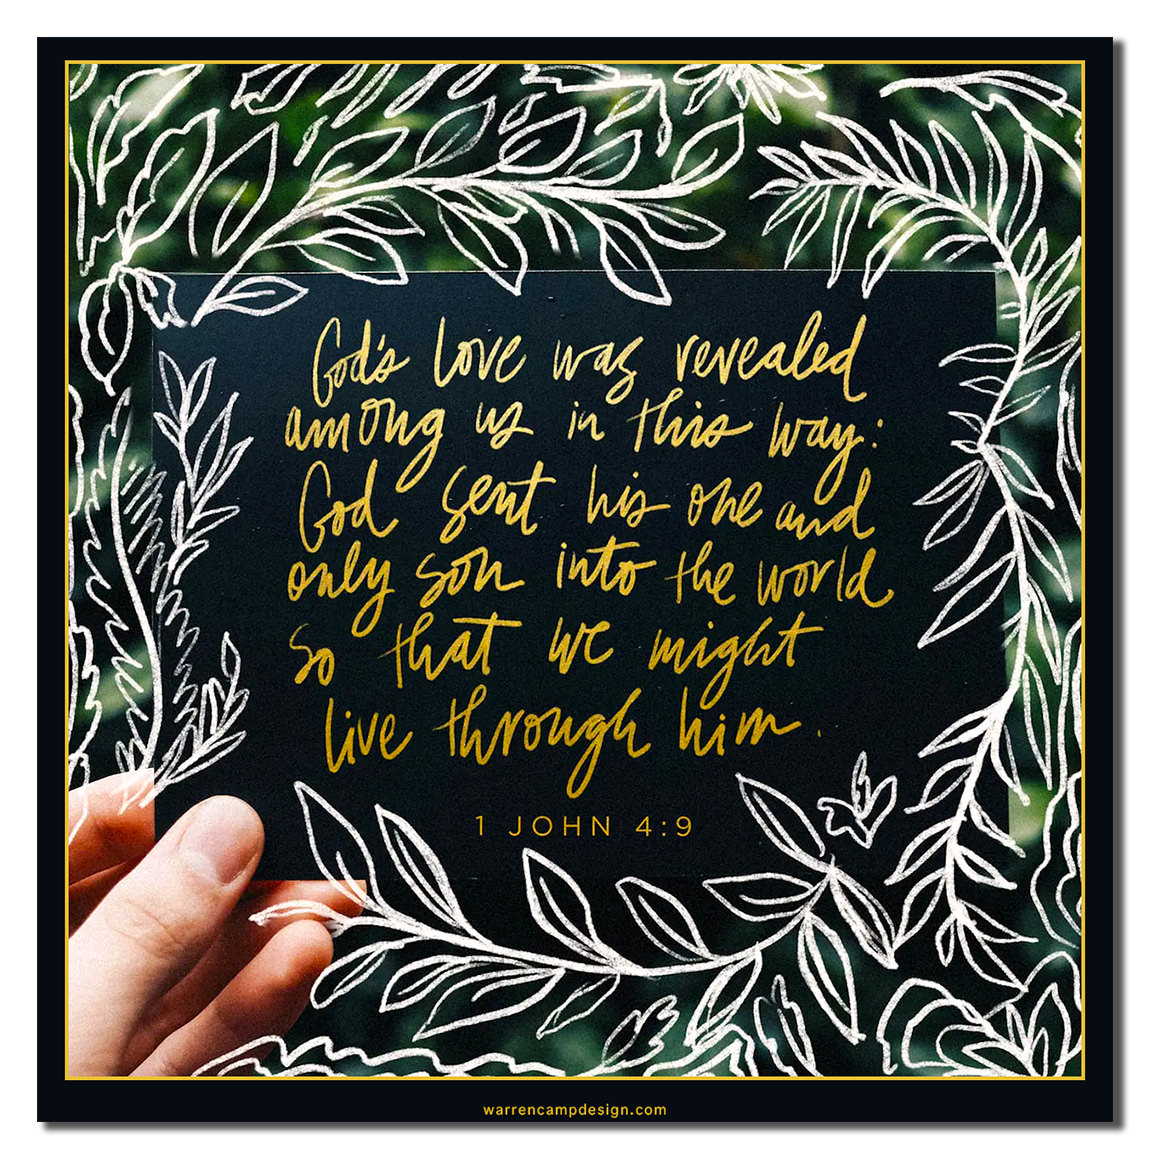 God's love was revealed
among us in this way:
God sent his one and
only son into the world
so that we might
live through him.
1 JOHN 4:9
warrencampdesign.com